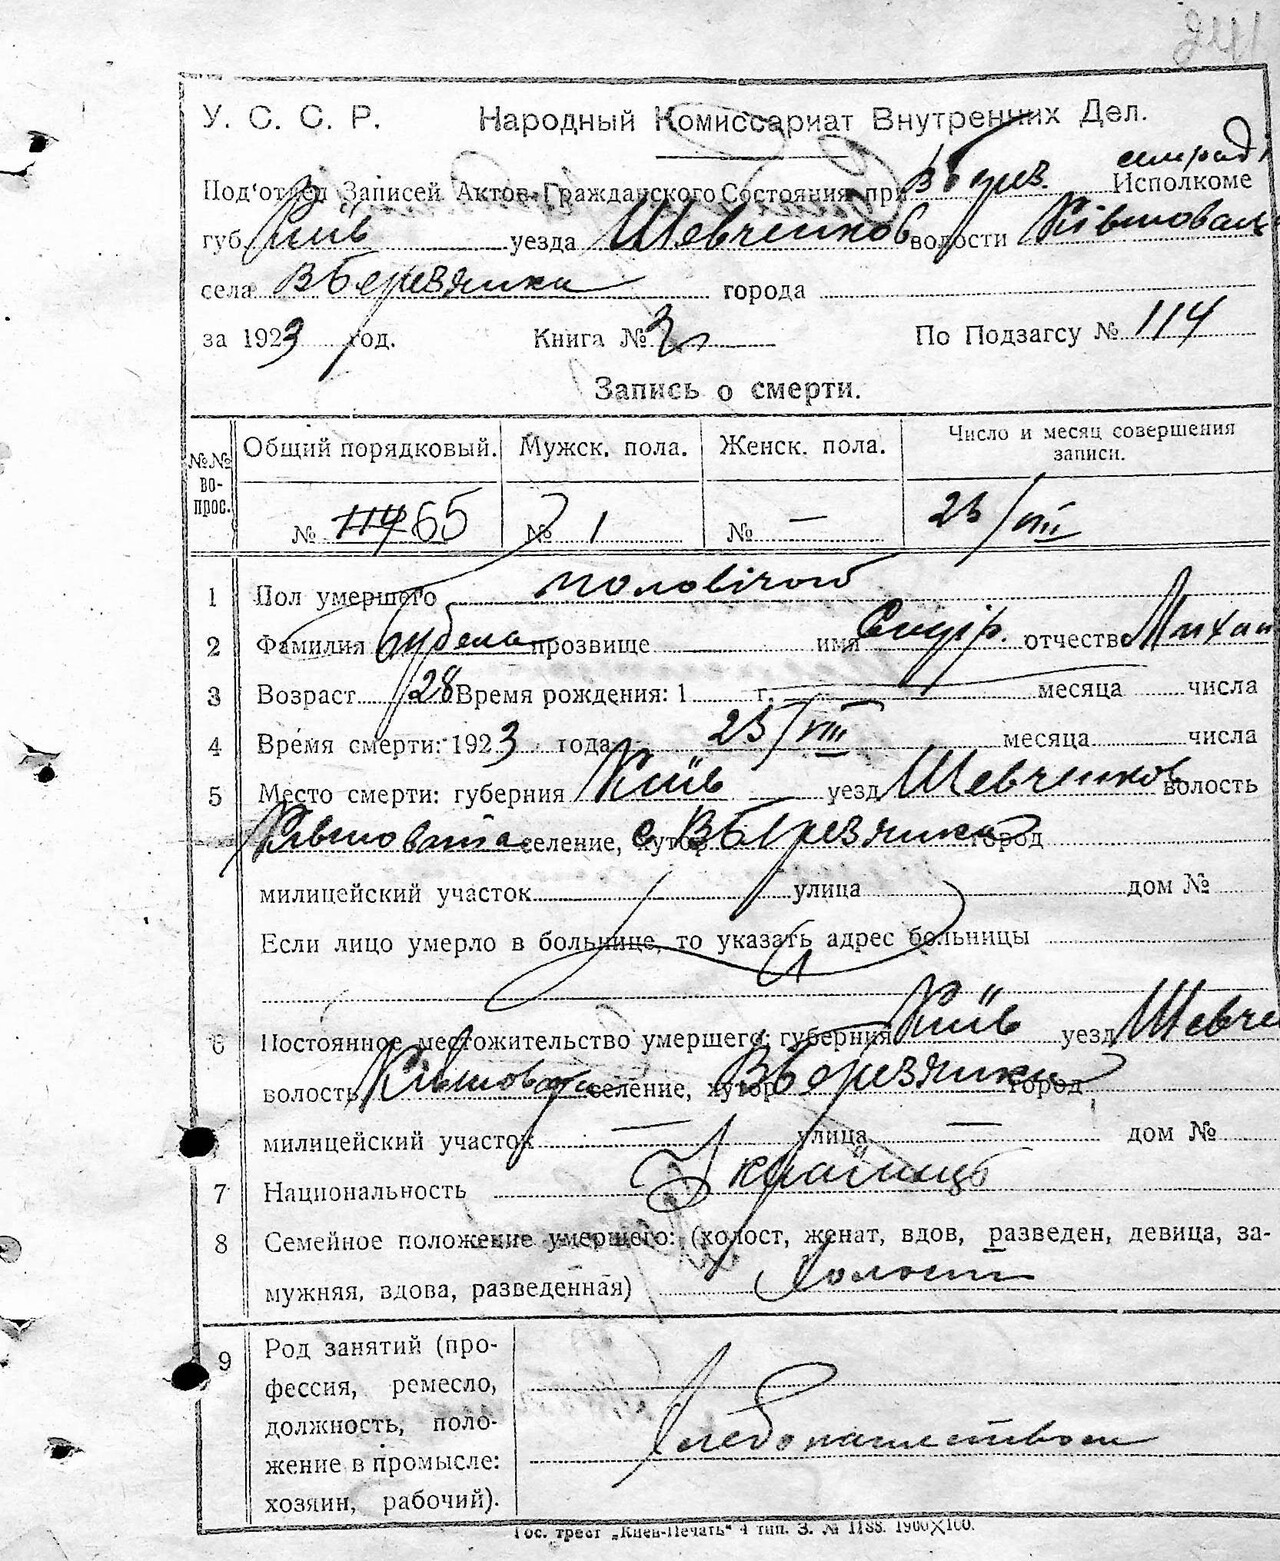 241
У. С. С. Р. Народный Комиссариат Внутренних Дел.
Под'отдел Записей Актов Гражданского Состояния при Вберез. Исполкоме
губ. Київ уезда Шевченков волости Ківшовацк
села ВБерезянка города
за 1923 год. Книга № 2 По Подзагсу № 114
Запись о смерти.
№№ вопрос. Общий порядковый. Мужск. пола. Женск. пола. Число и месяц совершения записи.
№ 114 65 № 1 № — 23/VIII
1 Пол умершего половічой
2 Фамилия прозвище имя Сидір. отчество Михай
3 Возраст 28 Время рождения: 1 г. месяца числа
4 Время смерти: 1923 года 23/VIII месяца числа
5 Место смерти: губерния Київ уезд Шевченков волость
Ківшовата селение, хутор с ВБерезянка город
милицейский участок улица дом №
Если лицо умерло в больнице, то указать адрес больницы
6 Постоянное местожительство умершего: губерния Київ уезд Шевче
волость Ківшовата селение, хутор ВБерезянка город
милицейский участок — улица — дом №
7 Национальность Українць
8 Семейное положение умершего: (холост, женат, вдов, разведен, девица, за-
мужняя, вдова, разведенная) Холост
9 Род занятий (про-
фессия, ремесло,
должность, поло-
жение в промысле: Хлебопашеством
хозяин, рабочий).
Гос. трест „Киев-Печать" 4 тип. З. № 1188. 1900Х100.